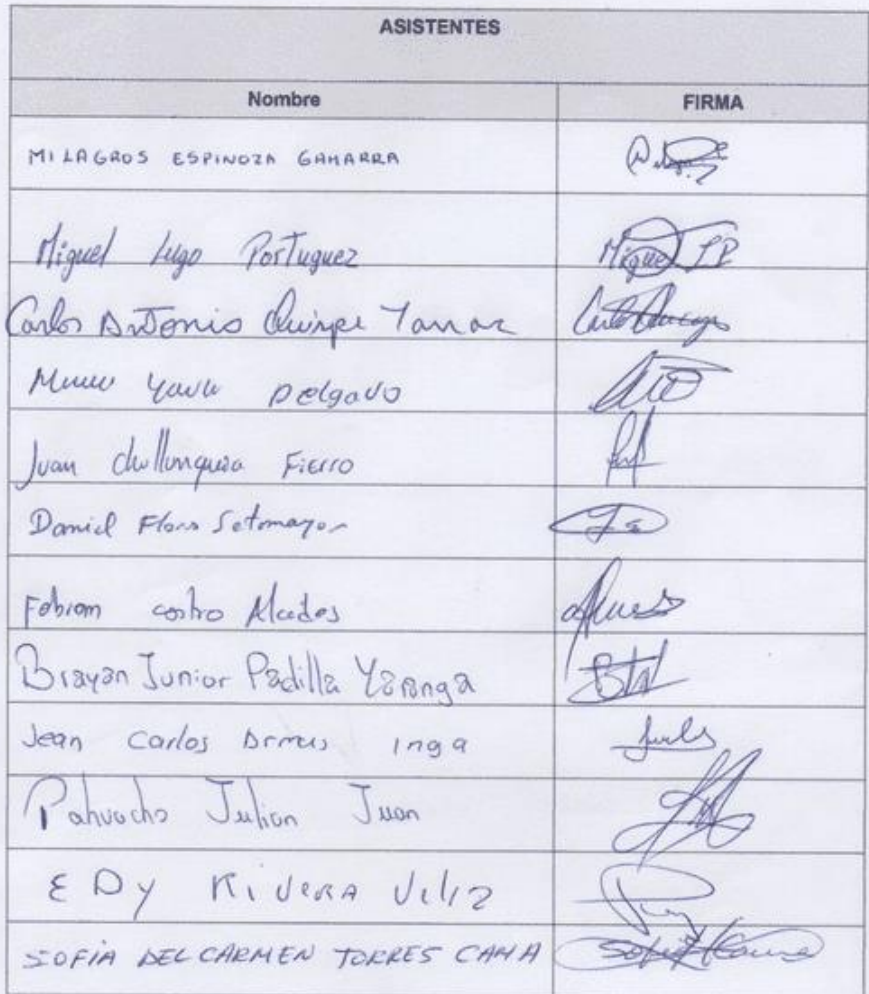 ASISTENTES
Nombre FIRMA
MILAGROS ESPINOZA GAMARRA
Miguel Lugo Portuguez Miguel
Carlos Antonio Quispe
Delgado
Juan Fierro
Daniel Flores Sotomayor
Fabian castro
Brayan Junior Padilla Yaranga
Jean Carlos inga
Pahuacho Julian Juan
EDy RiveRA Veliz
SOFIA DEL CARMEN TORRES CAMA